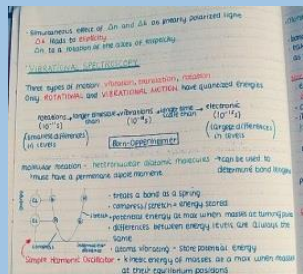 · Simultaneous effect of Δn and Δk on linearly polarized light
Δk leads to ellipticity
Δn to a rotation of the axes of ellipticity.
VIBRATIONAL SPECTROSCOPY
Three types of motion: vibration, translation, rotation
Only ROTATIONAL and VIBRATIONAL MOTION have quantized energies
rotations → longer timescale than → vibrations → longer time scale than → electronic
(smallest differences in levels)
(largest differences in levels)
Born-Oppenheimer
molecular rotation - heteronuclear diatomic molecules → can be used to determine bond lengths
must have a permanent dipole moment
· treats a bond as a spring
· compress/stretch = energy stored
· potential energy at max when masses at turning point
· differences between energy levels are always the same
· atoms vibrating - store potential energy
Simple Harmonic Oscillator
· kinetic energy of masses at a max when masses at their equilibrium positions